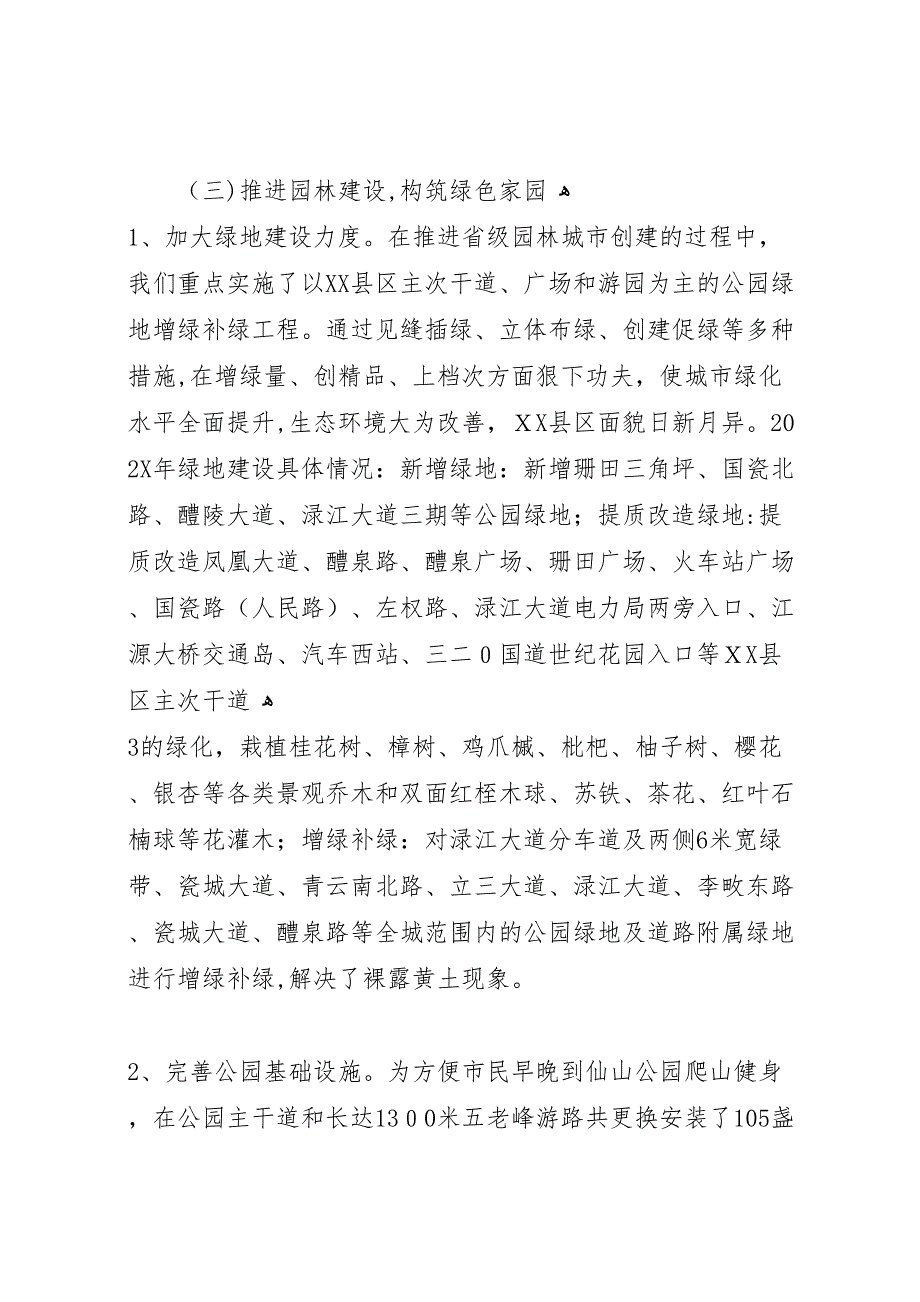 （三)推进园林建设,构筑绿色家园ﻫ
1、加大绿地建设力度。在推进省级园林城市创建的过程中，
我们重点实施了以XX县区主次干道、广场和游园为主的公园绿
地增绿补绿工程。通过见缝插绿、立体布绿、创建促绿等多种
措施,在增绿量、创精品、上档次方面狠下功夫，使城市绿化
水平全面提升,生态环境大为改善，ＸX县区面貌日新月异。20
2X年绿地建设具体情况：新增绿地：新增珊田三角坪、国瓷北
路、醴陵大道、渌江大道三期等公园绿地；提质改造绿地:提
质改造凤凰大道、醴泉路、醴泉广场、珊田广场、火车站广场
、国瓷路（人民路）、左权路、渌江大道电力局两旁入口、江
源大桥交通岛、汽车西站、三二０国道世纪花园入口等ＸX县
区主次干道ﻫ
3的绿化，栽植桂花树、樟树、鸡爪槭、枇杷、柚子树、樱花
、银杏等各类景观乔木和双面红桎木球、苏铁、茶花、红叶石
楠球等花灌木；增绿补绿：对渌江大道分车道及两侧6米宽绿
带、瓷城大道、青云南北路、立三大道、渌江大道、李畋东路
、瓷城大道、醴泉路等全城范围内的公园绿地及道路附属绿地
进行增绿补绿,解决了裸露黄土现象。
2、完善公园基础设施。为方便市民早晚到仙山公园爬山健身
，在公园主干道和长达13００米五老峰游路共更换安装了105盏